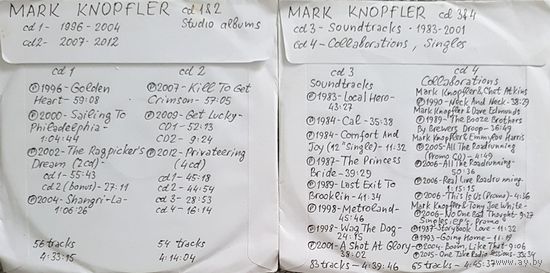 MARK KNOPFLER cd 1&2
cd1- 1996-2004 Studio albums
cd2- 2007-2012
cd 1
℗1996-Golden
Heart-59:08
℗2000-Sailing To
Philadelphia-
1:04:44
℗2002-The Ragpicker's
Dream (2cd)-
cd1-55:43
cd2 (bonus)-27:11
℗2004-Shangri-La-
1:06:26
56 tracks
4:33:14
cd 2
℗2007-Kill To Get
Crimson-57:05
℗2009-Get Lucky-
CD1-52:13
CD2-9:24
℗2012-Privateering
(4cd)
cd1-45:18
cd2-44:54
cd3-28:53
cd4-16:14
54 tracks
4:14:04
MARK KNOPFLER cd 3&4
cd3-Soundtracks·1983-2001
cd4-Collaborations, Singles
cd 3
Soundtracks
℗1983-Local Hero-
43:27
℗1984-Cal-35:38
℗1984-Comfort And
Joy (12"Single)-11:32
℗1987-The Princess
Bride-39:29
℗1989-Last Exit To
Brooklin-41:34
℗1998-Metroland-
45:46
℗1998-Wag The Dog-
24:15
℗2001-A Shot At Glory-
38:02
83 tracks-4:39:46
cd 4
Collaborations
Mark Knopfler&Chet Atkins
℗1990-Neck And Neck-38:29
Mark Knopfler & Dave Edmunds
℗1989-The Booze Brothers
By Brewers Droop-36:49
Mark Knopfler& Emmylou Harris
℗2005-All The Roadrunning
(Promo CD)-4:49
℗2006-All The Roadrunning-
50:36
℗2006-Real Live Roadrunning
1:15:15
℗2006-This Is Us(Promo)-4:36
Mark Knopfler& Tony Joe White-
℗2006-No One But Thought-9:27
Singles, EP's, Promo
℗1987-Storybook Love-11:32
℗1993-Going Home-11:19
℗2004-Boom, Like That-9:06
℗2004-One Take Radio Sessions-33:34
65 tracks-4:45:37
www.ay.by